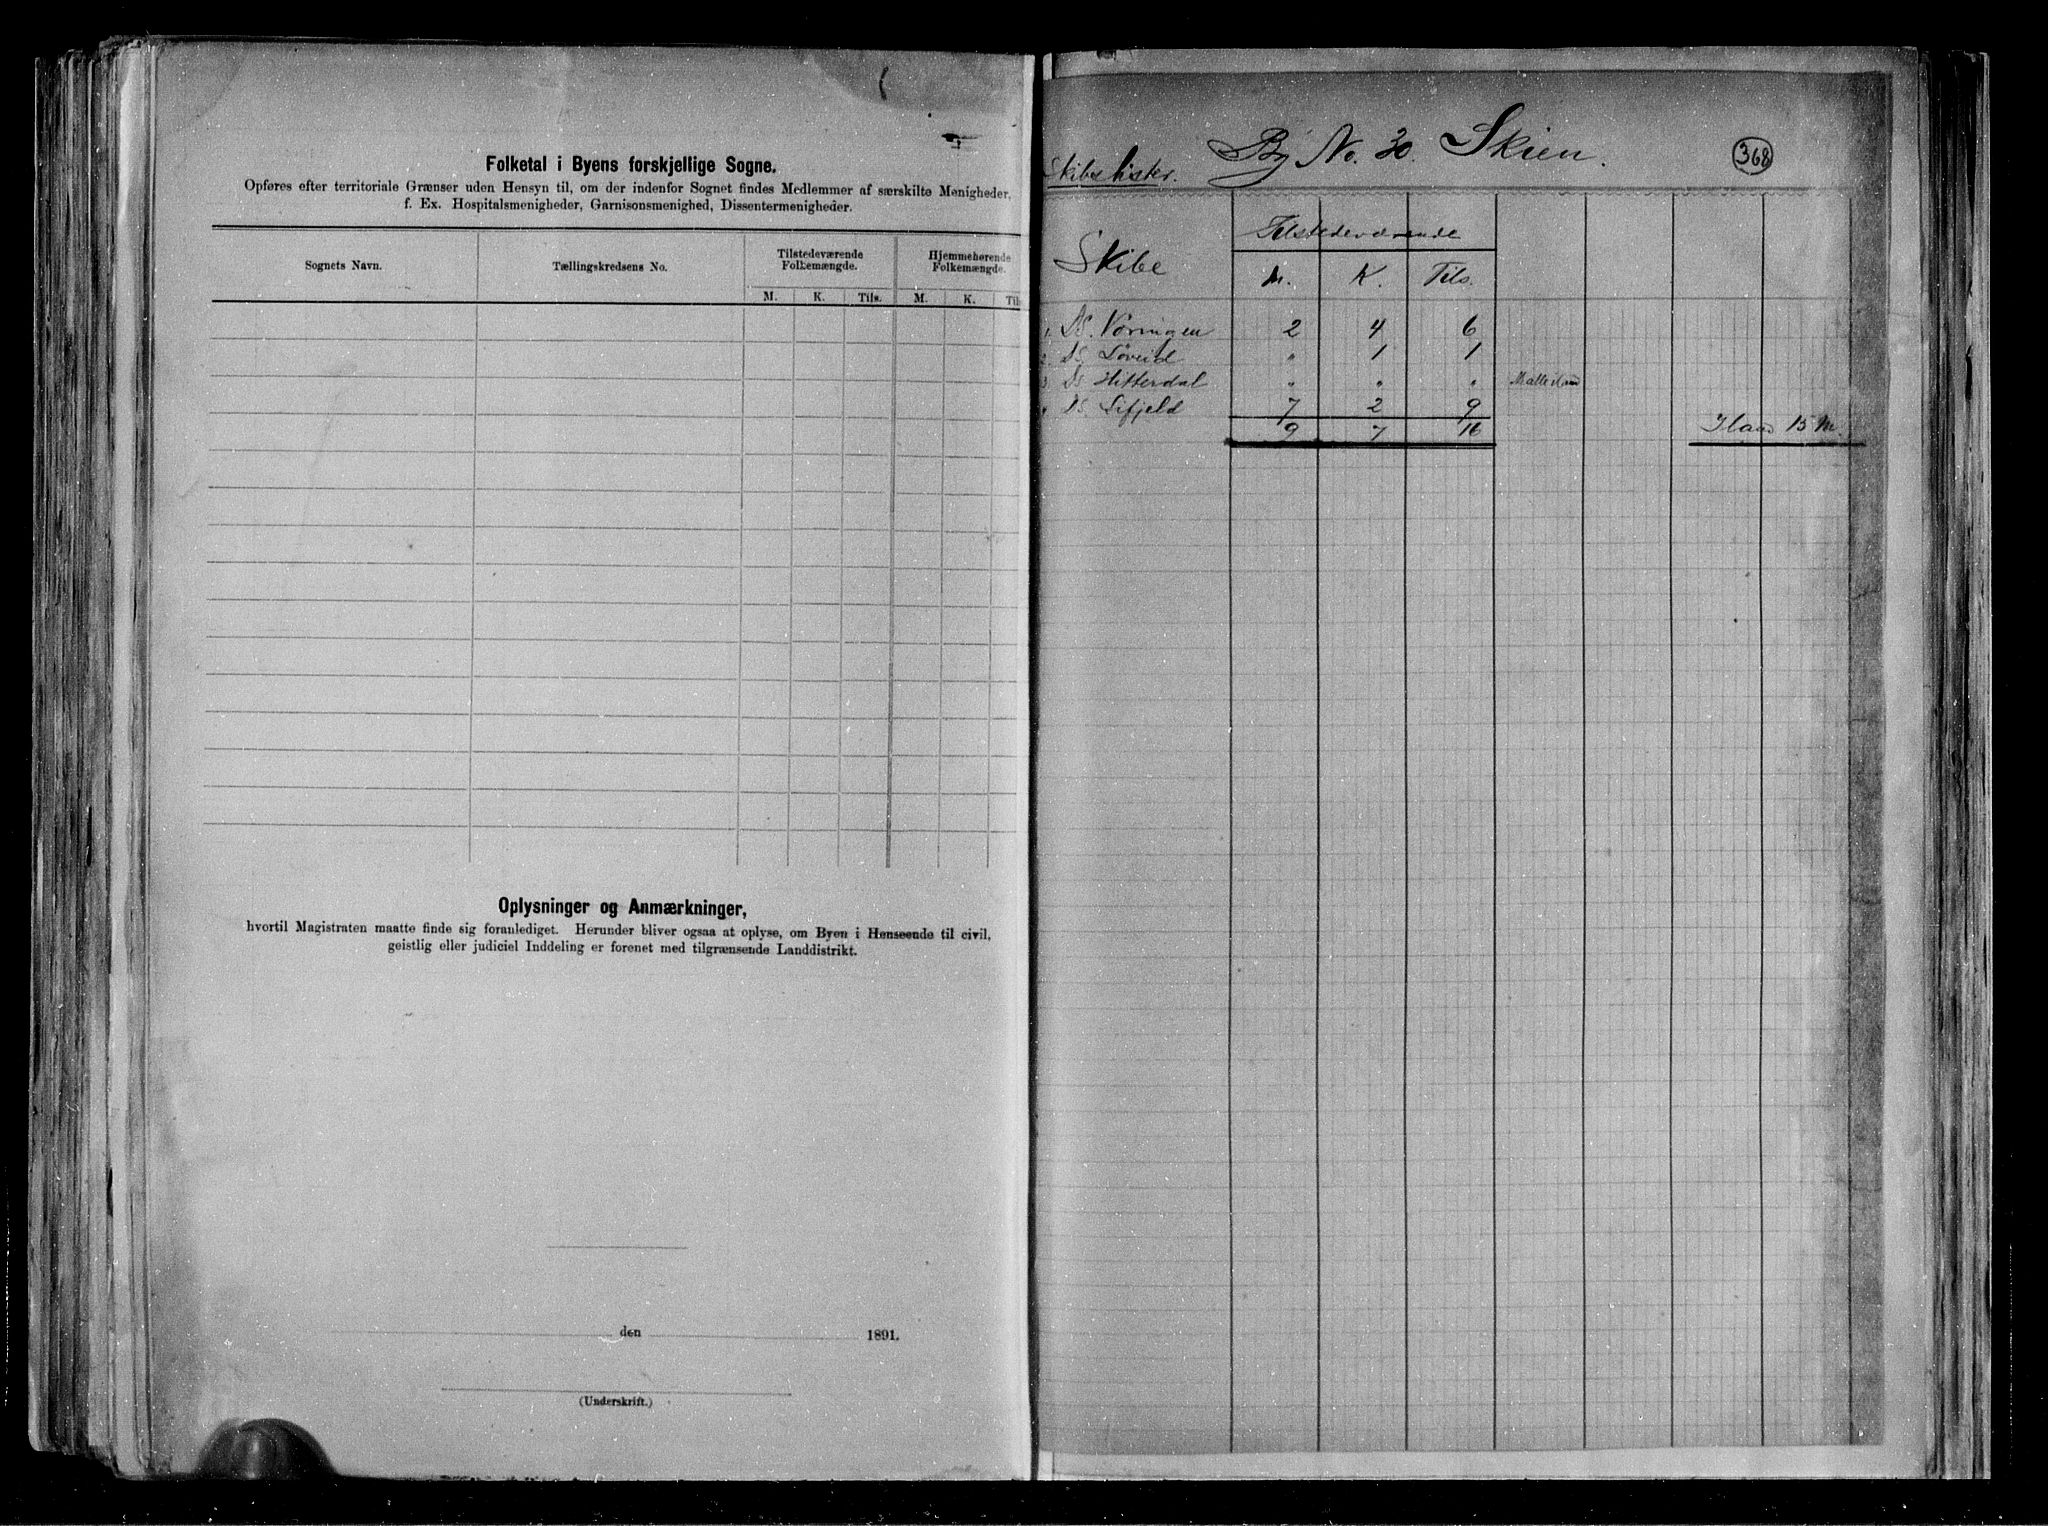 Folketal i Byens forskjellige Sogne.
Opføres efter territoriale Grænser uden Hensyn til, om der indenfor Sognet findes Medlemmer af særskilte Menigheder,
f. Ex. Hospitalsmenigheder, Garnisonsmenighed, Dissentermenigheder.
Sognets Navn. Tællingskredsens No. Tilstedeværende Folkemængde. Hjemmehørende Folkemængde.
M. K. Tils. M. K. Tils
Oplysninger og Anmærkninger,
hvortil Magistraten maatte finde sig foranlediget. Herunder bliver ogsaa at oplyse, om Byen i Henseende til civil,
geistlig eller judiciel Inddeling er forenet med tilgrænsende Landdistrikt.
den 1891.
(Underskrift.)
By No. 30. Skien. 368
Skibslister.
Tilstedeværende
Skibe M. K. Tils.
1. DS. Vøringen 2 4 6
2. DS. Løveid " 1 1
3. DS. Hitterdal " " "
4 DS. Lifjeld 7 2 9
9 7 16 15 M.